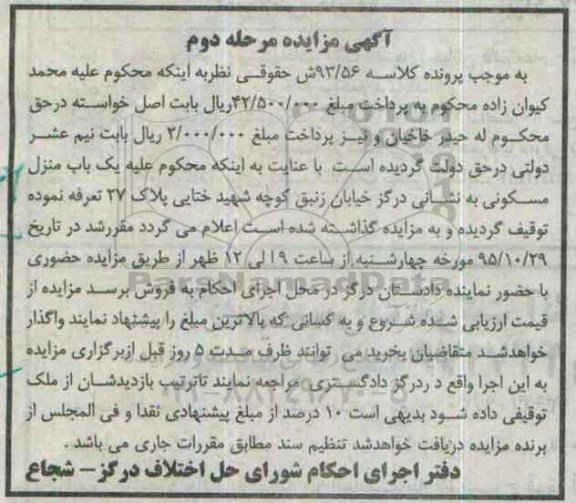 آگهی مزایده مرحله دوم
به موجب پرونده کلاسه ۹۳/۵۶ش حقوقی نظربه اینکه محکوم علیه محمد
کیوان زاده محکوم به پرداخت مبلغ ۴۲/۵۰۰/۰۰۰ریال بابت اصل خواسته درحق
محکوم له حیدر خاخیان و نیز پرداخت مبلغ ۲/۰۰۰/۰۰۰ ریال بابت نیم عشر
دولتی درحق دولت گردیده است با عنایت به اینکه محکوم علیه یک باب منزل
مسکونی به نشانی درگز خیابان زنبق کوچه شهید ختایی پلاک ۲۷ تعرفه نموده
توقیف گردیده و به مزایده گذاشته شده است اعلام می گردد مقررشد در تاریخ
۹۵/۱۰/۲۹ مورخه چهارشنبه از ساعت ۹ الی ۱۲ ظهر از طریق مزایده حضوری
با حضور نماینده دادستان درگز در محل اجرای احکام به فروش برسد مزایده از
قیمت ارزیابی شده شروع و به کسانی که بالاترین مبلغ را پیشنهاد نمایند واگذار
خواهدشد متقاضیان بخرید می توانند ظرف مدت ۵ روز قبل ازبرگزاری مزایده
به این اجرا واقع د ردرگز دادگستری مراجعه نمایند تاترتیب بازدیدشان از ملک
توقیفی داده شود بدیهی است ۱۰ درصد از مبلغ پیشنهادی نقدا و فی المجلس از
برنده مزایده دریافت خواهدشد تنظیم سند مطابق مقررات جاری می باشد .
دفتر اجرای احکام شورای حل اختلاف درگز – شجاع
ParsNamadData